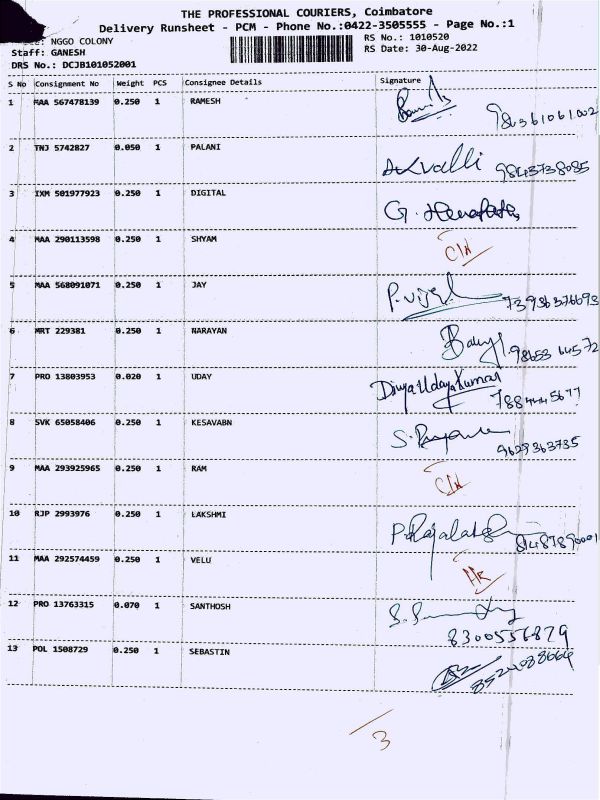 THE PROFESSIONAL COURIERS, Coimbatore
Delivery Runsheet - PCM - Phone No.:0422-3505555 - Page No.:1
NGGO COLONY RS No.: 1010520
Staff: GANESH RS Date: 30-Aug-2022
DRS No.: DCJB101052001
S No Consignment No Weight PCS Consignee Details Signature
1 MAA 567478139 0.250 1 RAMESH
2 TNJ 5742827 0.050 1 PALANI 9843738085
3 IXM 501977923 0.250 1 DIGITAL G.
4 MAA 290113598 0.250 1 SHYAM C/N
5 MAA 568091071 0.250 1 JAY
6 MRT 229381 0.250 1 NARAYAN
7 PRO 13803953 0.020 1 UDAY Divya Udaya Kumar
8 SVK 65058406 0.250 1 KESAVABN 9629363735
9 MAA 293925965 0.250 1 RAM C/N
10 RJP 2993976 0.250 1 LAKSHMI
11 MAA 292574459 0.250 1 VELU
12 PRO 13763315 0.070 1 SANTHOSH 8300556879
13 POL 1508729 0.250 1 SEBASTIN
3